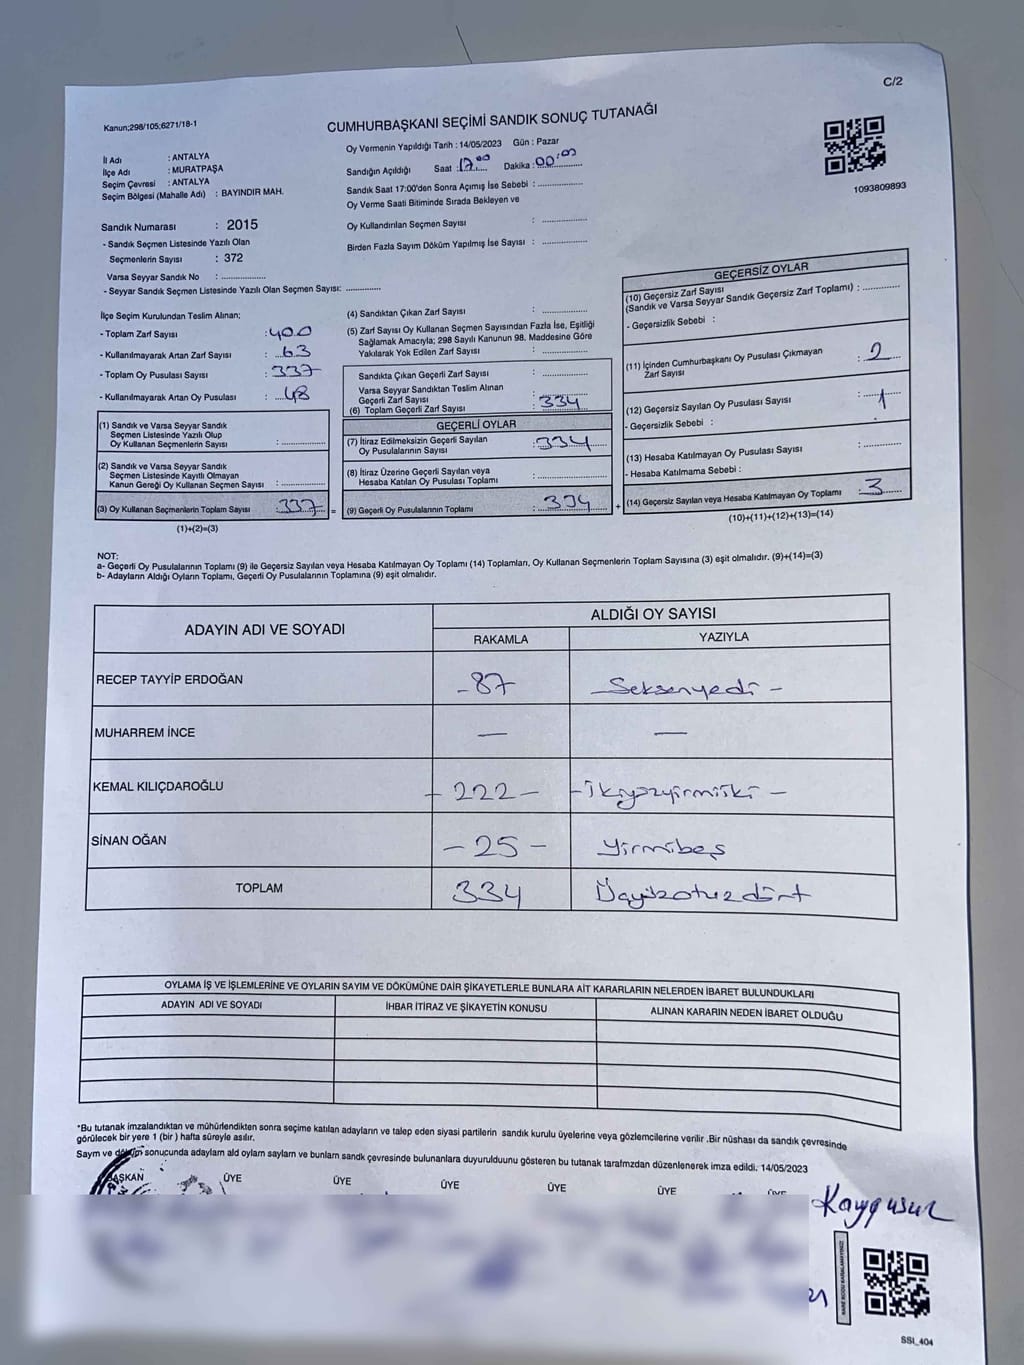 C/2
Kanun;298/105;6271/18-1
CUMHURBAŞKANI SEÇİMİ SANDIK SONUÇ TUTANAĞI
İl Adı : ANTALYA
İlçe Adı : MURATPAŞA
Seçim Çevresi : ANTALYA
Seçim Bölgesi (Mahalle Adı) : BAYINDIR MAH.
Sandık Numarası : 2015
- Sandık Seçmen Listesinde Yazılı Olan
Seçmenlerin Sayısı : 372
Varsa Seyyar Sandık No : ..................
- Seyyar Sandık Seçmen Listesinde Yazılı Olan Seçmen Sayısı: ..............
Oy Vermenin Yapıldığı Tarih : 14/05/2023 Gün : Pazar
Sandığın Açıldığı Saat : 17.00 Dakika : 00:00
Sandık Saat 17:00'den Sonra Açımış İse Sebebi : ..................
Oy Verme Saati Bitiminde Sırada Bekleyen ve
Oy Kullandırılan Seçmen Sayısı : ..................
Birden Fazla Sayım Döküm Yapılmış İse Sayısı : ..................
1093809893
İlçe Seçim Kurulundan Teslim Alınan;
- Toplam Zarf Sayısı : 400
- Kullanılmayarak Artan Zarf Sayısı : 63
- Toplam Oy Pusulası Sayısı : 337
- Kullanılmayarak Artan Oy Pusulası : 48
(1) Sandık ve Varsa Seyyar Sandık
Seçmen Listesinde Yazılı Olup
Oy Kullanan Seçmenlerin Sayısı : ..................
(2) Sandık ve Varsa Seyyar Sandık
Seçmen Listesinde Kayıtlı Olmayan
Kanun Gereği Oy Kullanan Seçmen Sayısı : ..................
(3) Oy Kullanan Seçmenlerin Toplam Sayısı : 337 =
(1)+(2)=(3)
(4) Sandıktan Çıkan Zarf Sayısı : ..................
(5) Zarf Sayısı Oy Kullanan Seçmen Sayısından Fazla İse, Eşitliği
Sağlamak Amacıyla; 298 Sayılı Kanunun 98. Maddesine Göre
Yakılarak Yok Edilen Zarf Sayısı : ..................
Sandıkta Çıkan Geçerli Zarf Sayısı : ..................
Varsa Seyyar Sandıktan Teslim Alınan
Geçerli Zarf Sayısı
(6) Toplam Geçerli Zarf Sayısı : 334
GEÇERLİ OYLAR
(7) İtiraz Edilmeksizin Geçerli Sayılan
Oy Pusulalarının Sayısı : 334
(8) İtiraz Üzerine Geçerli Sayılan veya
Hesaba Katılan Oy Pusulası Toplamı : ..................
(9) Geçerli Oy Pusulalarının Toplamı : 334 +
GEÇERSİZ OYLAR
(10) Geçersiz Zarf Sayısı
(Sandık ve Varsa Seyyar Sandık Geçersiz Zarf Toplamı) : ..............
- Geçersizlik Sebebi :
(11) İçinden Cumhurbaşkanı Oy Pusulası Çıkmayan
Zarf Sayısı : 2
(12) Geçersiz Sayılan Oy Pusulası Sayısı : 1
- Geçersizlik Sebebi :
(13) Hesaba Katılmayan Oy Pusulası Sayısı : ..............
- Hesaba Katılmama Sebebi :
(14) Geçersiz Sayılan veya Hesaba Katılmayan Oy Toplamı : 3
(10)+(11)+(12)+(13)=(14)
NOT:
a- Geçerli Oy Pusulalarının Toplamı (9) ile Geçersiz Sayılan veya Hesaba Katılmayan Oy Toplamı (14) Toplamları, Oy Kullanan Seçmenlerin Toplam Sayısına (3) eşit olmalıdır. (9)+(14)=(3)
b- Adayların Aldığı Oyların Toplamı, Geçerli Oy Pusulalarının Toplamına (9) eşit olmalıdır.
ADAYIN ADI VE SOYADI
ALDIĞI OY SAYISI
RAKAMLA YAZIYLA
RECEP TAYYİP ERDOĞAN - 87 - Seksenyedi -
MUHARREM İNCE — —
KEMAL KILIÇDAROĞLU - 222 - - ikiyüzyirmiiki -
SİNAN OĞAN - 25 - Yirmibeş
TOPLAM 334 Üçyüzotuzdört
OYLAMA İŞ VE İŞLEMLERİNE VE OYLARIN SAYIM VE DÖKÜMÜNE DAİR ŞİKAYETLERLE BUNLARA AİT KARARLARIN NELERDEN İBARET BULUNDUKLARI
ADAYIN ADI VE SOYADI İHBAR İTİRAZ VE ŞİKAYETİN KONUSU ALINAN KARARIN NEDEN İBARET OLDUĞU
*Bu tutanak imzalandıktan ve mühürlendikten sonra seçime katılan adayların ve talep eden siyasi partilerin sandık kurulu üyelerine veya gözlemcilerine verilir .Bir nüshası da sandık çevresinde
görülecek bir yere 1 (bir ) hafta süreyle asılır.
Sayım ve döküm sonucunda adaylarn ald oylarn saylarn ve bunlarn sandk çevresinde bulunanlara duyurulduunu gösteren bu tutanak tarafmzdan düzenlenerek imza edildi. 14/05/2023
BAŞKAN ÜYE ÜYE ÜYE ÜYE ÜYE ÜYE
Kaygusuz
SSI_404